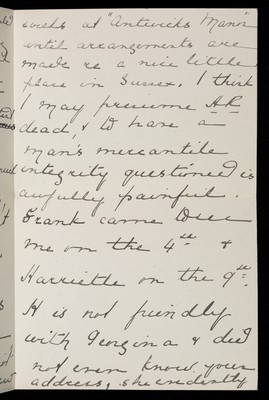 weeks at "Antwicks Manor"
until arrangements are
made re a nice little
place in Sussex. I think
I may presume AR
dead, & to have a
man's mercantile
integrity questioned is
awfully painful.
Frank came to see
me on the 4th &
Harriette on the 9th.
H is not friendly
with Georgina & did
not even know your
address, she evidently